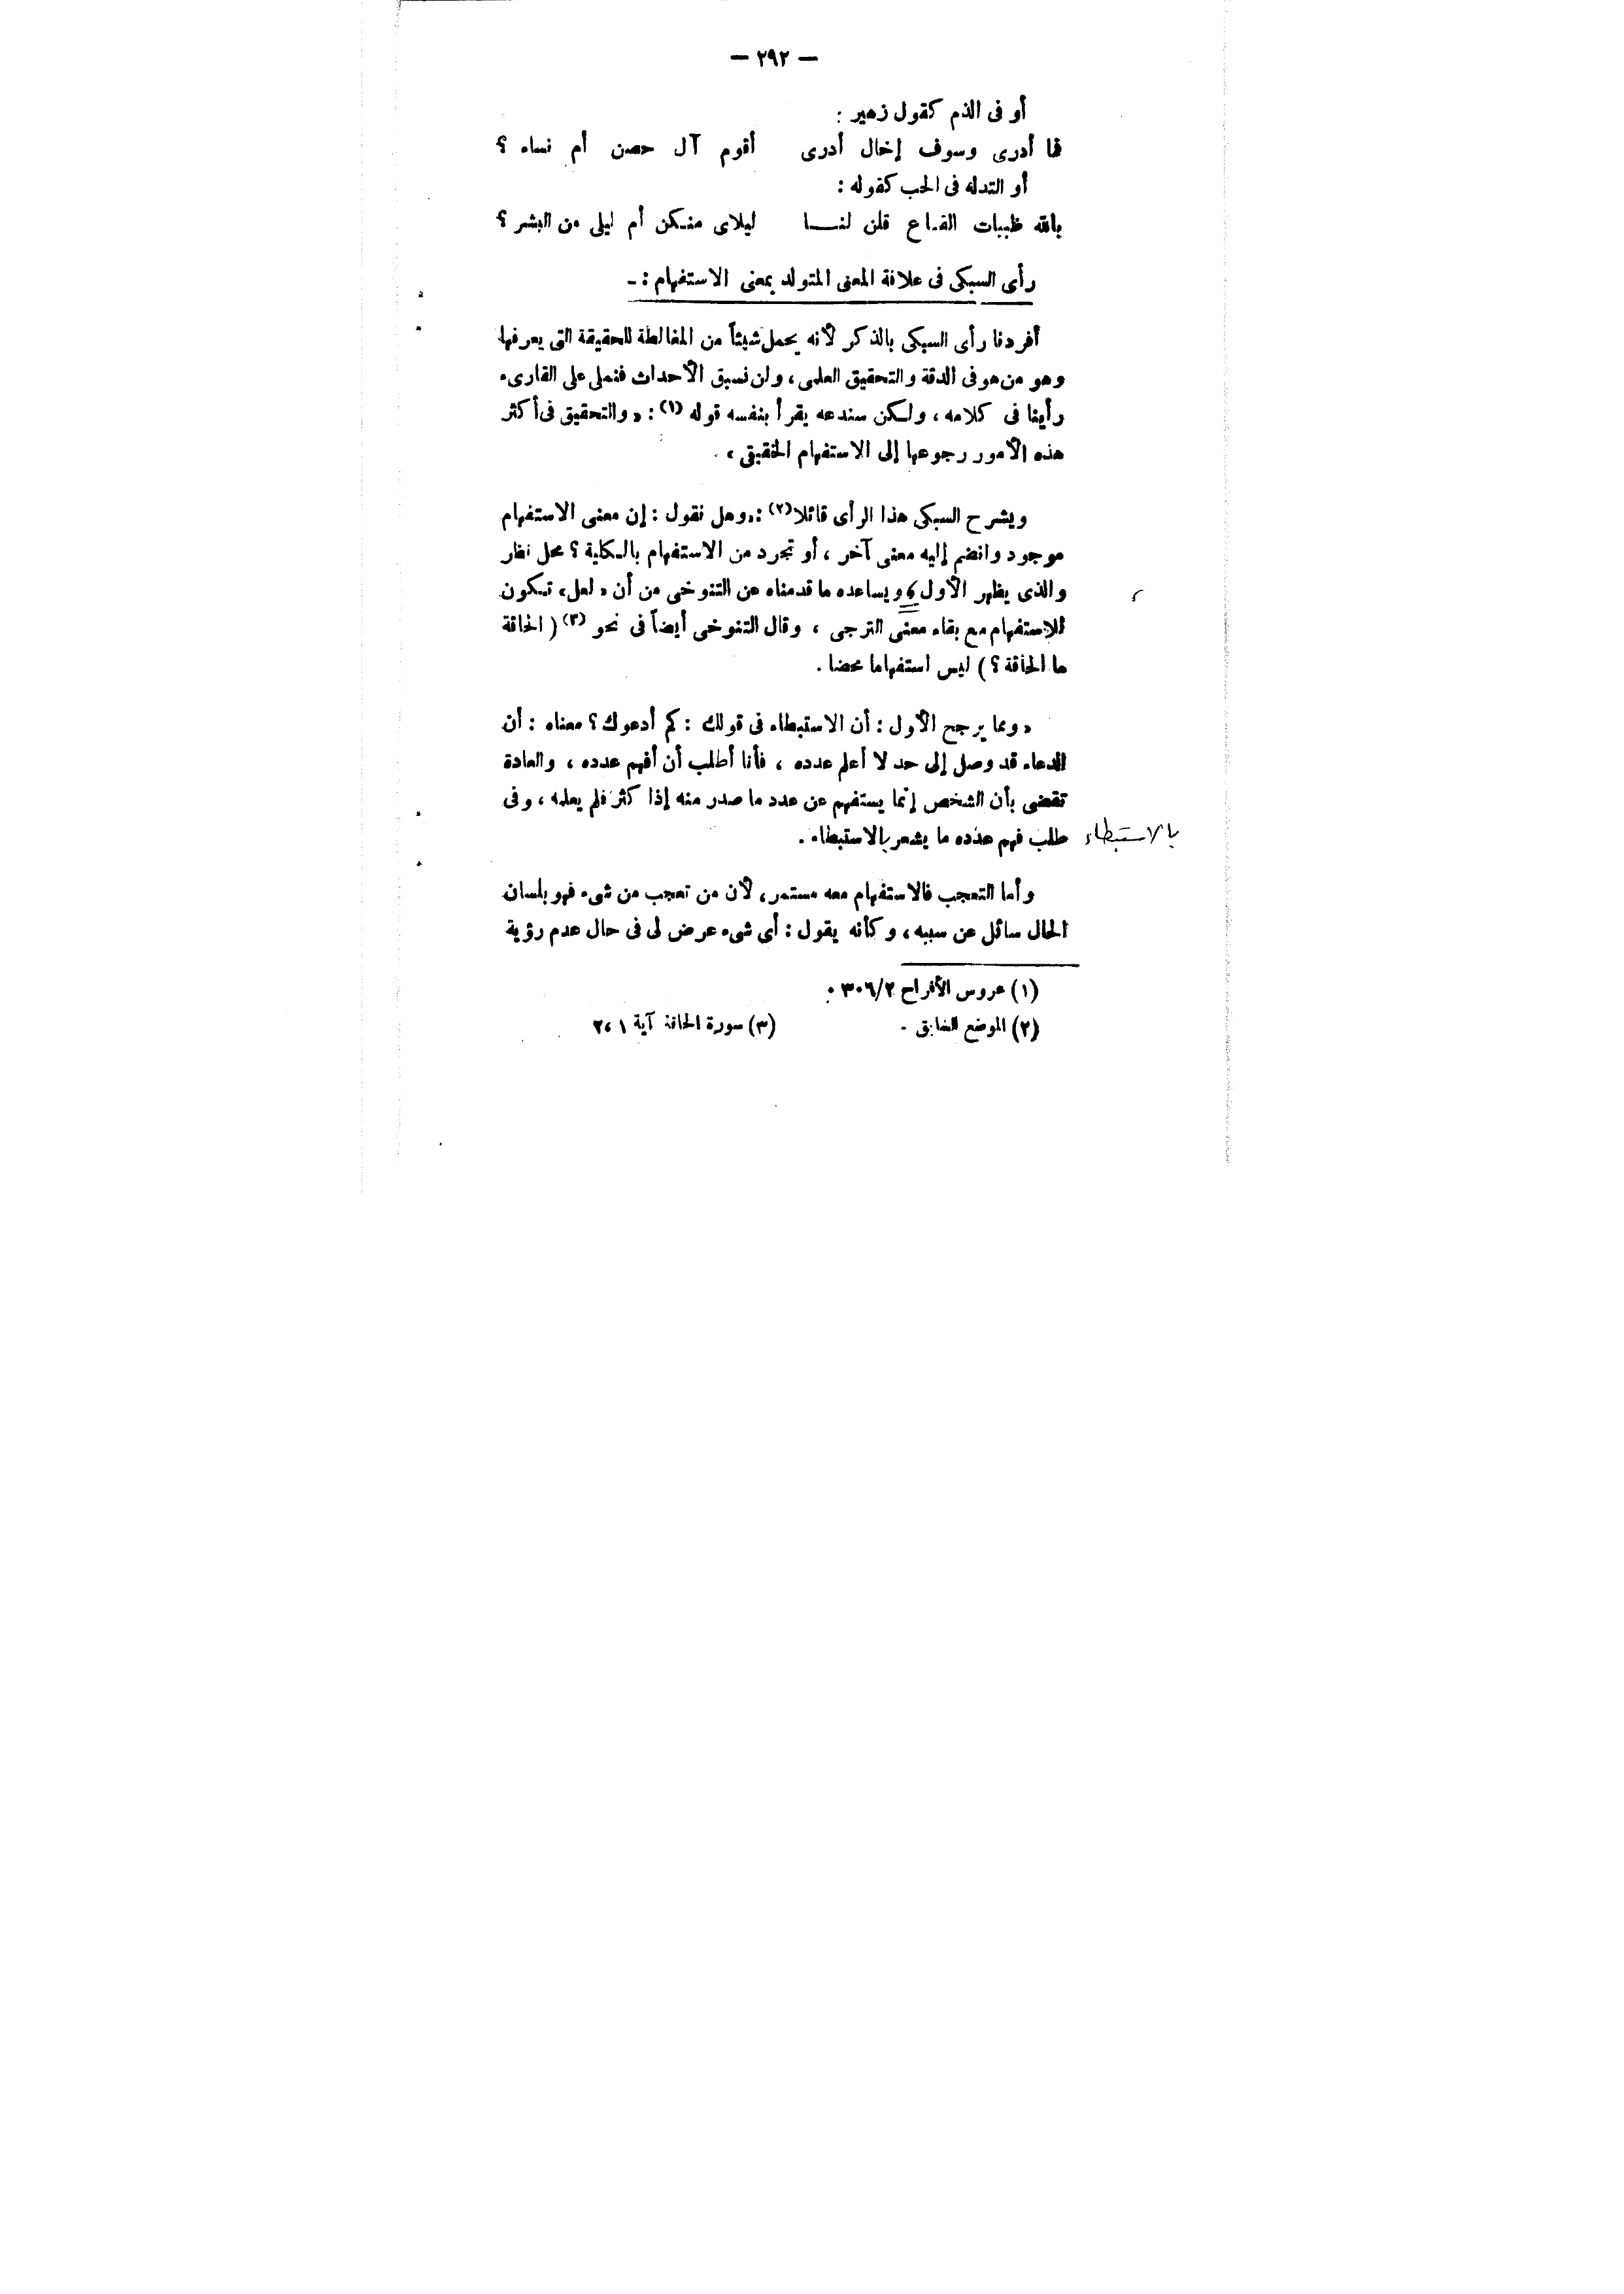 — ٢٩٢ —
أو فى الذم كقول زهير :
فما أدرى وسوف إخال أدرى أقوم آل حصن أم نساء ؟
أو التدله فى الحب كقوله :
بالله ظبيات القـاع قلن لنـــا ليلاى منـكن أم ليلى من البشر ؟
رأى السبكى فى علاقة المعنى المتولد بمعنى الاستفهام : -
أفردنا رأى السبكى بالذكر لأنه يحمل شيئاً من المغالطة للحقيقة التى يعرفها
وهو من هو فى الدقة والتحقيق العلمى ، ولن نسبق الأحداث فنملى على القارىء
رأينا فى كلامه ، ولـكن سندعه يقرأ بنفسه قوله (١) : « والتحقيق فى أكثر
هذه الأمور رجوعها إلى الاستفهام الحقيقى » .
ويشرح السبكى هذا الرأى قائلا (٢) : « وهل نقول : إن معنى الاستفهام
موجود وانضم إليه معنى آخر ، أو تجرد من الاستفهام بالـكلية ؟ محل نظر
والذى يظهر الأول ، ويساعده ما قدمناه عن التنوخى من أن « لعل » تـكون
للاستفهام مع بقاء معنى الترجى ، وقال التنوخى أيضاً فى نحو (٣) ( الحاقة
ما الحاقة ؟ ) ليس استفهاما محضا .
« ومما يرجح الأول : أن الاستبطاء فى قولك : كم أدعوك ؟ معناه : أن
الدعاء قد وصل إلى حد لا أعلم عدده ، فأنا أطلب أن أفهم عدده ، والعادة
تقضى بأن الشخص إنما يستفهم عن عدد ما صدر منه إذا كثر فلم يعلمه ، وفى
طلب فهم عدده ما يشعر بالاستبطاء .
بالاستبطاء
وأما التعجب فالاستفهام معه مستمر ، لأن من تعجب من شىء فهو بلسان
الحال سائل عن سببه ، وكأنه يقول : أى شىء عرض لى فى حال عدم رؤية
(١) عروس الأفراح ٣٠٦/٢ .
(٢) الموضع السابق . (٣) سورة الحاقة آية ١ ، ٢